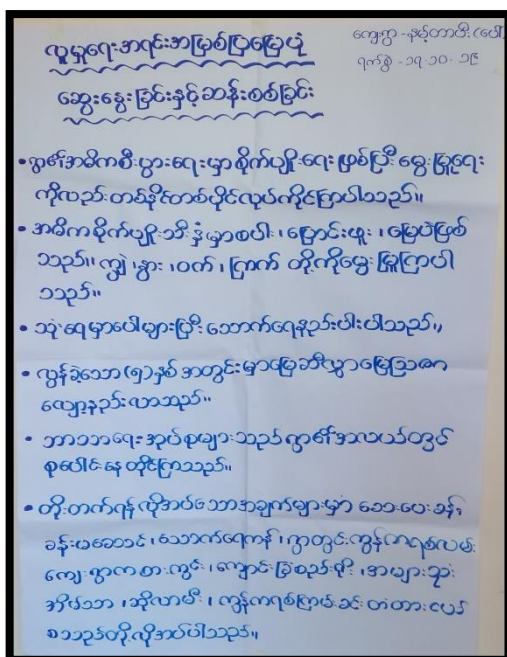 လူမှုရေးအရင်းအမြစ်ပြမြေပုံ
ဆွေးနွေးခြင်းနှင့်ဆန်းစစ်ခြင်း
ကျေးရွာ - နမ့်တာပီး (ပေါ်)
ရက်စွဲ - ၁၇-၁၀-၁၉
• ရွာ၏အဓိကစီးပွားရေးမှာစိုက်ပျိုးရေးဖြစ်ပြီးမွေးမြူရေး
ကိုလည်းတစ်နိုင်တစ်ပိုင်လုပ်ကိုင်ကြပါသည်။
• အဓိကစိုက်ပျိုးသီးနှံမှာစပါး၊ ပြောင်းဖူး၊ မြေပဲဖြစ်
သည်။ ကျွဲ၊ နွား၊ ဝက်၊ ကြက် တို့ကိုမွေးမြူကြပါ
သည်။
• သုံးရေမှာပေါများပြီးသောက်ရေနည်းပါးပါသည်။
• လွန်ခဲ့သော(၅)နှစ်အတွင်းမှာမြေဆီလွှာမြေဩဇာ
လျော့နည်းလာသည်။
• ဘာသာရေးအုပ်စုများသည်ရွာ၏အလယ်တွင်
စုပေါင်းနေထိုင်ကြသည်။
• တိုးတက်ရန်လိုအပ်သောအချက်များမှာ ဆေးပေးခန်း၊
ခန်းမဆောင်၊ သောက်ရေကန်၊ ရွာတွင်းကွန်ကရစ်လမ်း
ကျေးရွာကစားကွင်း၊ ကျောင်းခြံစည်းရိုး၊ အများသုံး
အိမ်သာ၊ ဆိုလာမီး၊ ကွန်ကရစ်ကြမ်းခင်းတံတား
စသည်တို့လိုအပ်ပါသည်။